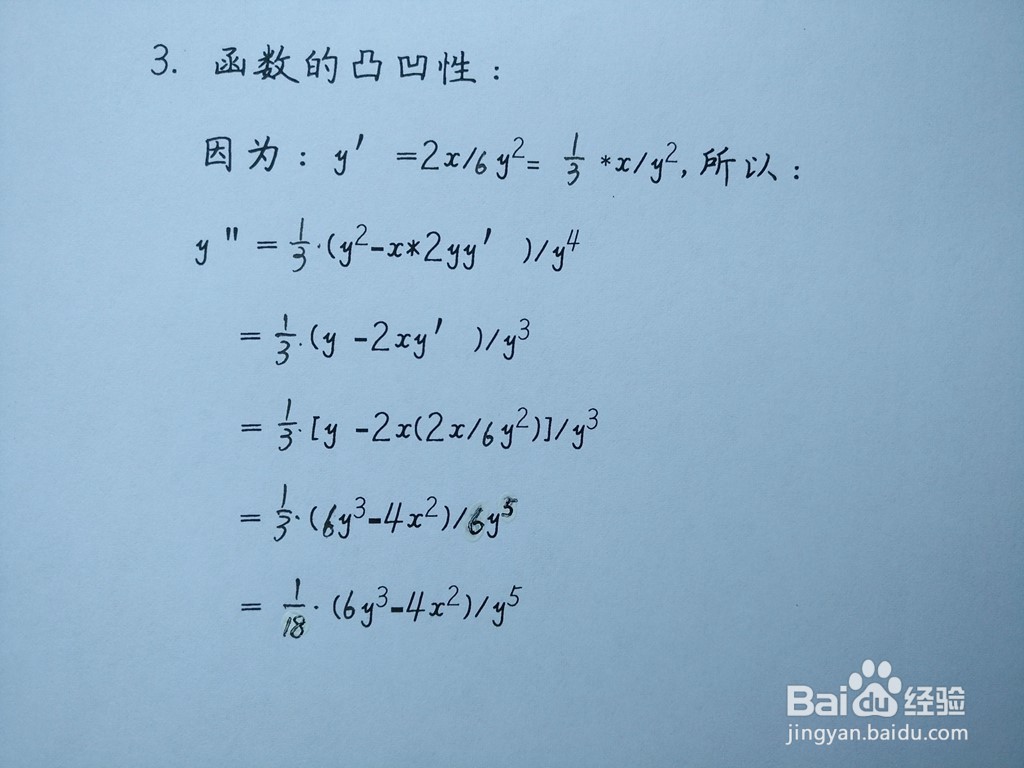 3. 函数的凸凹性:
因为: y′ =2x/6y²= 1/3 *x/y², 所以:
y″ = 1/3·(y²-x*2yy′ )/y⁴
= 1/3·(y -2xy′ )/y³
= 1/3·[y -2x(2x/6y²)]/y³
= 1/3·(6y³-4x²)/6y⁵
= 1/18·(6y³-4x²)/y⁵
Baidu经验
jingyan.baidu.com